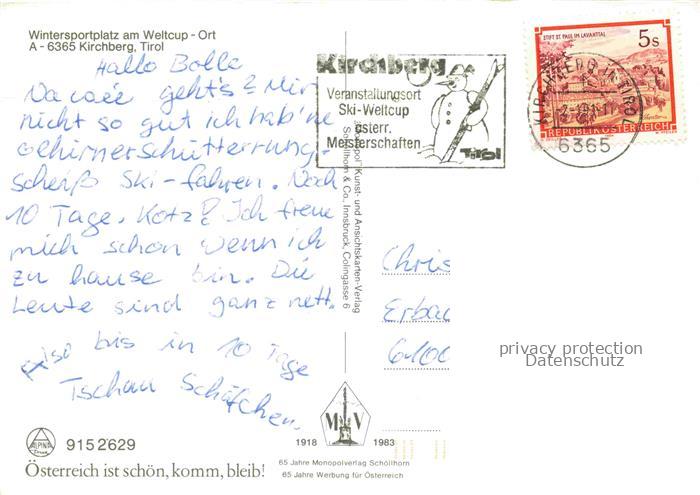 Wintersportplatz am Weltcup - Ort
A - 6365 Kirchberg, Tirol
Hallo Bolle
Na wie geht's? Mir
nicht so gut ich hab'ne
Gehirnerschütterrung.
scheiß Ski-fahren. Noch
10 Tage. Kotz! Ich freue
mich schon wenn ich
zu hause bin. Die
Leute sind ganz nett.
Also bis in 10 Tage
Tschau Schäfchen.
Kirchberg
Veranstaltungsort
Ski-Weltcup
österr.
Meisterschaften
Tirol
STIFT ST. PAUL IM LAVANTTAL
5s
REPUBLIK ÖSTERREICH
6365
"Monopol" Kunst- und Ansichtskarten-Verlag
Schöllhorn & Co., Innsbruck, Colingasse 6
Chris
Erbac
6100
privacy protection
Datenschutz
ALPINA
Druck
915 2629
Österreich ist schön, komm, bleib!
M V
1918 1983
65 Jahre Monopolverlag Schöllhorn
65 Jahre Werbung für Österreich